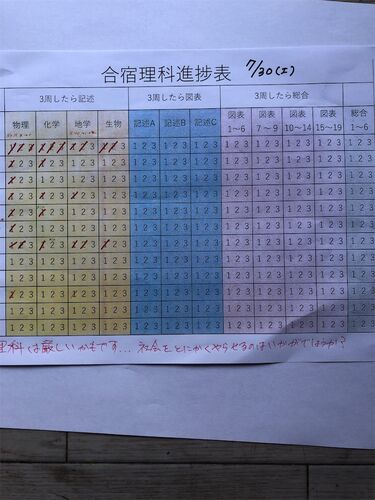 合宿理科進捗表 7/30(土)
3周したら記述 3周したら図表 3周したら総合
物理 化学 地学 生物 記述A 記述B 記述C 図表 1~6 図表 7~9 図表 10~14 図表 15~19 総合 1~6
1 2 3 1 2 3 1 2 3 1 2 3 1 2 3 1 2 3 1 2 3 1 2 3 1 2 3 1 2 3 1 2 3 1 2 3
1 2 3 1 2 3 1 2 3 1 2 3 1 2 3 1 2 3 1 2 3 1 2 3 1 2 3 1 2 3 1 2 3 1 2 3
1 2 3 1 2 3 1 2 3 1 2 3 1 2 3 1 2 3 1 2 3 1 2 3 1 2 3 1 2 3 1 2 3 1 2 3
1 2 3 1 2 3 1 2 3 1 2 3 1 2 3 1 2 3 1 2 3 1 2 3 1 2 3 1 2 3 1 2 3 1 2 3
1 2 3 1 2 3 1 2 3 1 2 3 1 2 3 1 2 3 1 2 3 1 2 3 1 2 3 1 2 3 1 2 3 1 2 3
1 2 3 1 2 3 1 2 3 1 2 3 1 2 3 1 2 3 1 2 3 1 2 3 1 2 3 1 2 3 1 2 3 1 2 3
1 2 3 1 2 3 1 2 3 1 2 3 1 2 3 1 2 3 1 2 3 1 2 3 1 2 3 1 2 3 1 2 3 1 2 3
1 2 3 1 2 3 1 2 3 1 2 3 1 2 3 1 2 3 1 2 3 1 2 3 1 2 3 1 2 3 1 2 3 1 2 3
1 2 3 1 2 3 1 2 3 1 2 3 1 2 3 1 2 3 1 2 3 1 2 3 1 2 3 1 2 3 1 2 3 1 2 3
1 2 3 1 2 3 1 2 3 1 2 3 1 2 3 1 2 3 1 2 3 1 2 3 1 2 3 1 2 3 1 2 3 1 2 3
1 2 3 1 2 3 1 2 3 1 2 3 1 2 3 1 2 3 1 2 3 1 2 3 1 2 3 1 2 3 1 2 3 1 2 3
1 2 3 1 2 3 1 2 3 1 2 3 1 2 3 1 2 3 1 2 3 1 2 3 1 2 3 1 2 3 1 2 3 1 2 3
理科は厳しいかもです… 社会をとにかくやらせるのはいかがでしょうか?